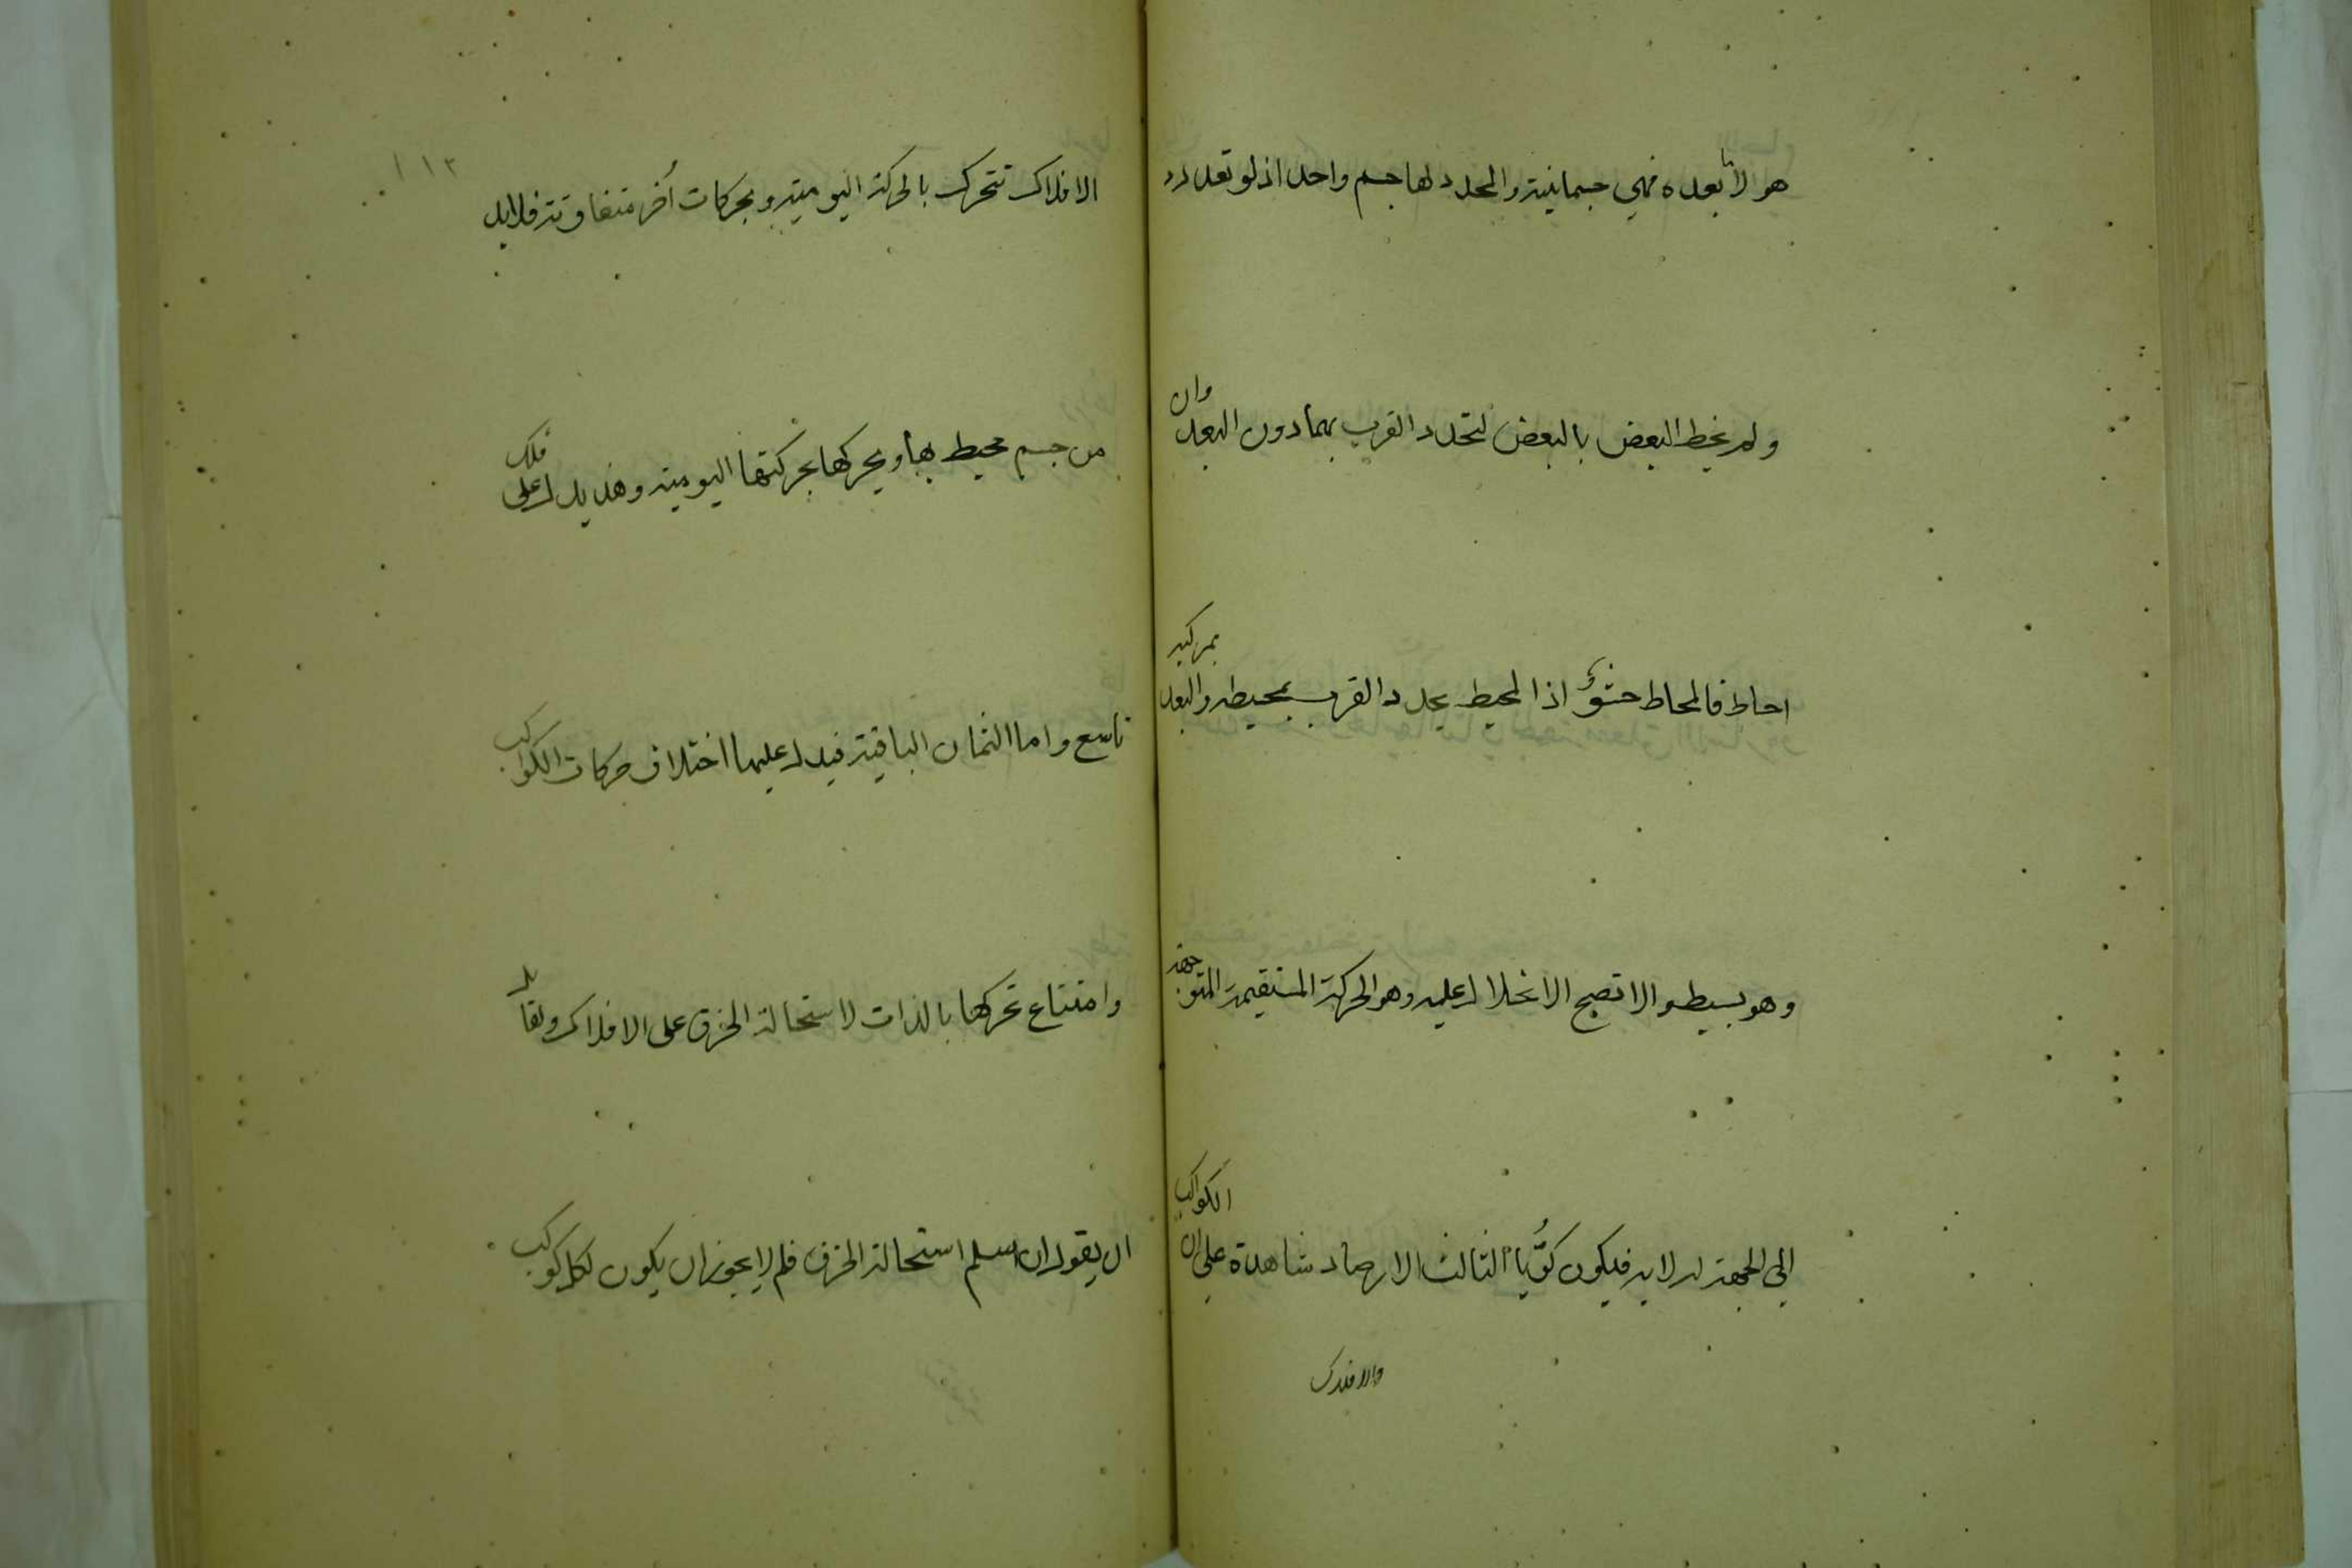 هو لا بعده فهي جسمانية والمحدد لها جسم واحد اذ لو تعدد
ولم يحط البعض بالبعض لتحدد القرب بهما دون البعد وان
احاط فالمحاط حشو اذ المحيط يحدد القرب بمحيطه والبعد بمركزه
وهو بسيط والا تصح الانحلال عليه وهو الحركة المستقيمة المتوجهة
الي الجهة لا به فيكون كريا الثالث الارصاد شاهدة علي ان الكواكب
والافلاك
١١٣
الافلاك تتحرك بالحركة اليومية وبحركات أخر متفاوتة فلا بد
من جسم محيط بها ويحركها بحركتها اليومية وهذ يدل علي فلك
تاسع واما الثمان الباقية فيدل عليها اختلاف حركات الكواكب
وامتناع تحركها بالذات لاستحالة الخرق علي الافلاك ولقائل
ان يقول ان سلم استحالة الخرق فلم لا يجوز ان يكون لكل كوكب